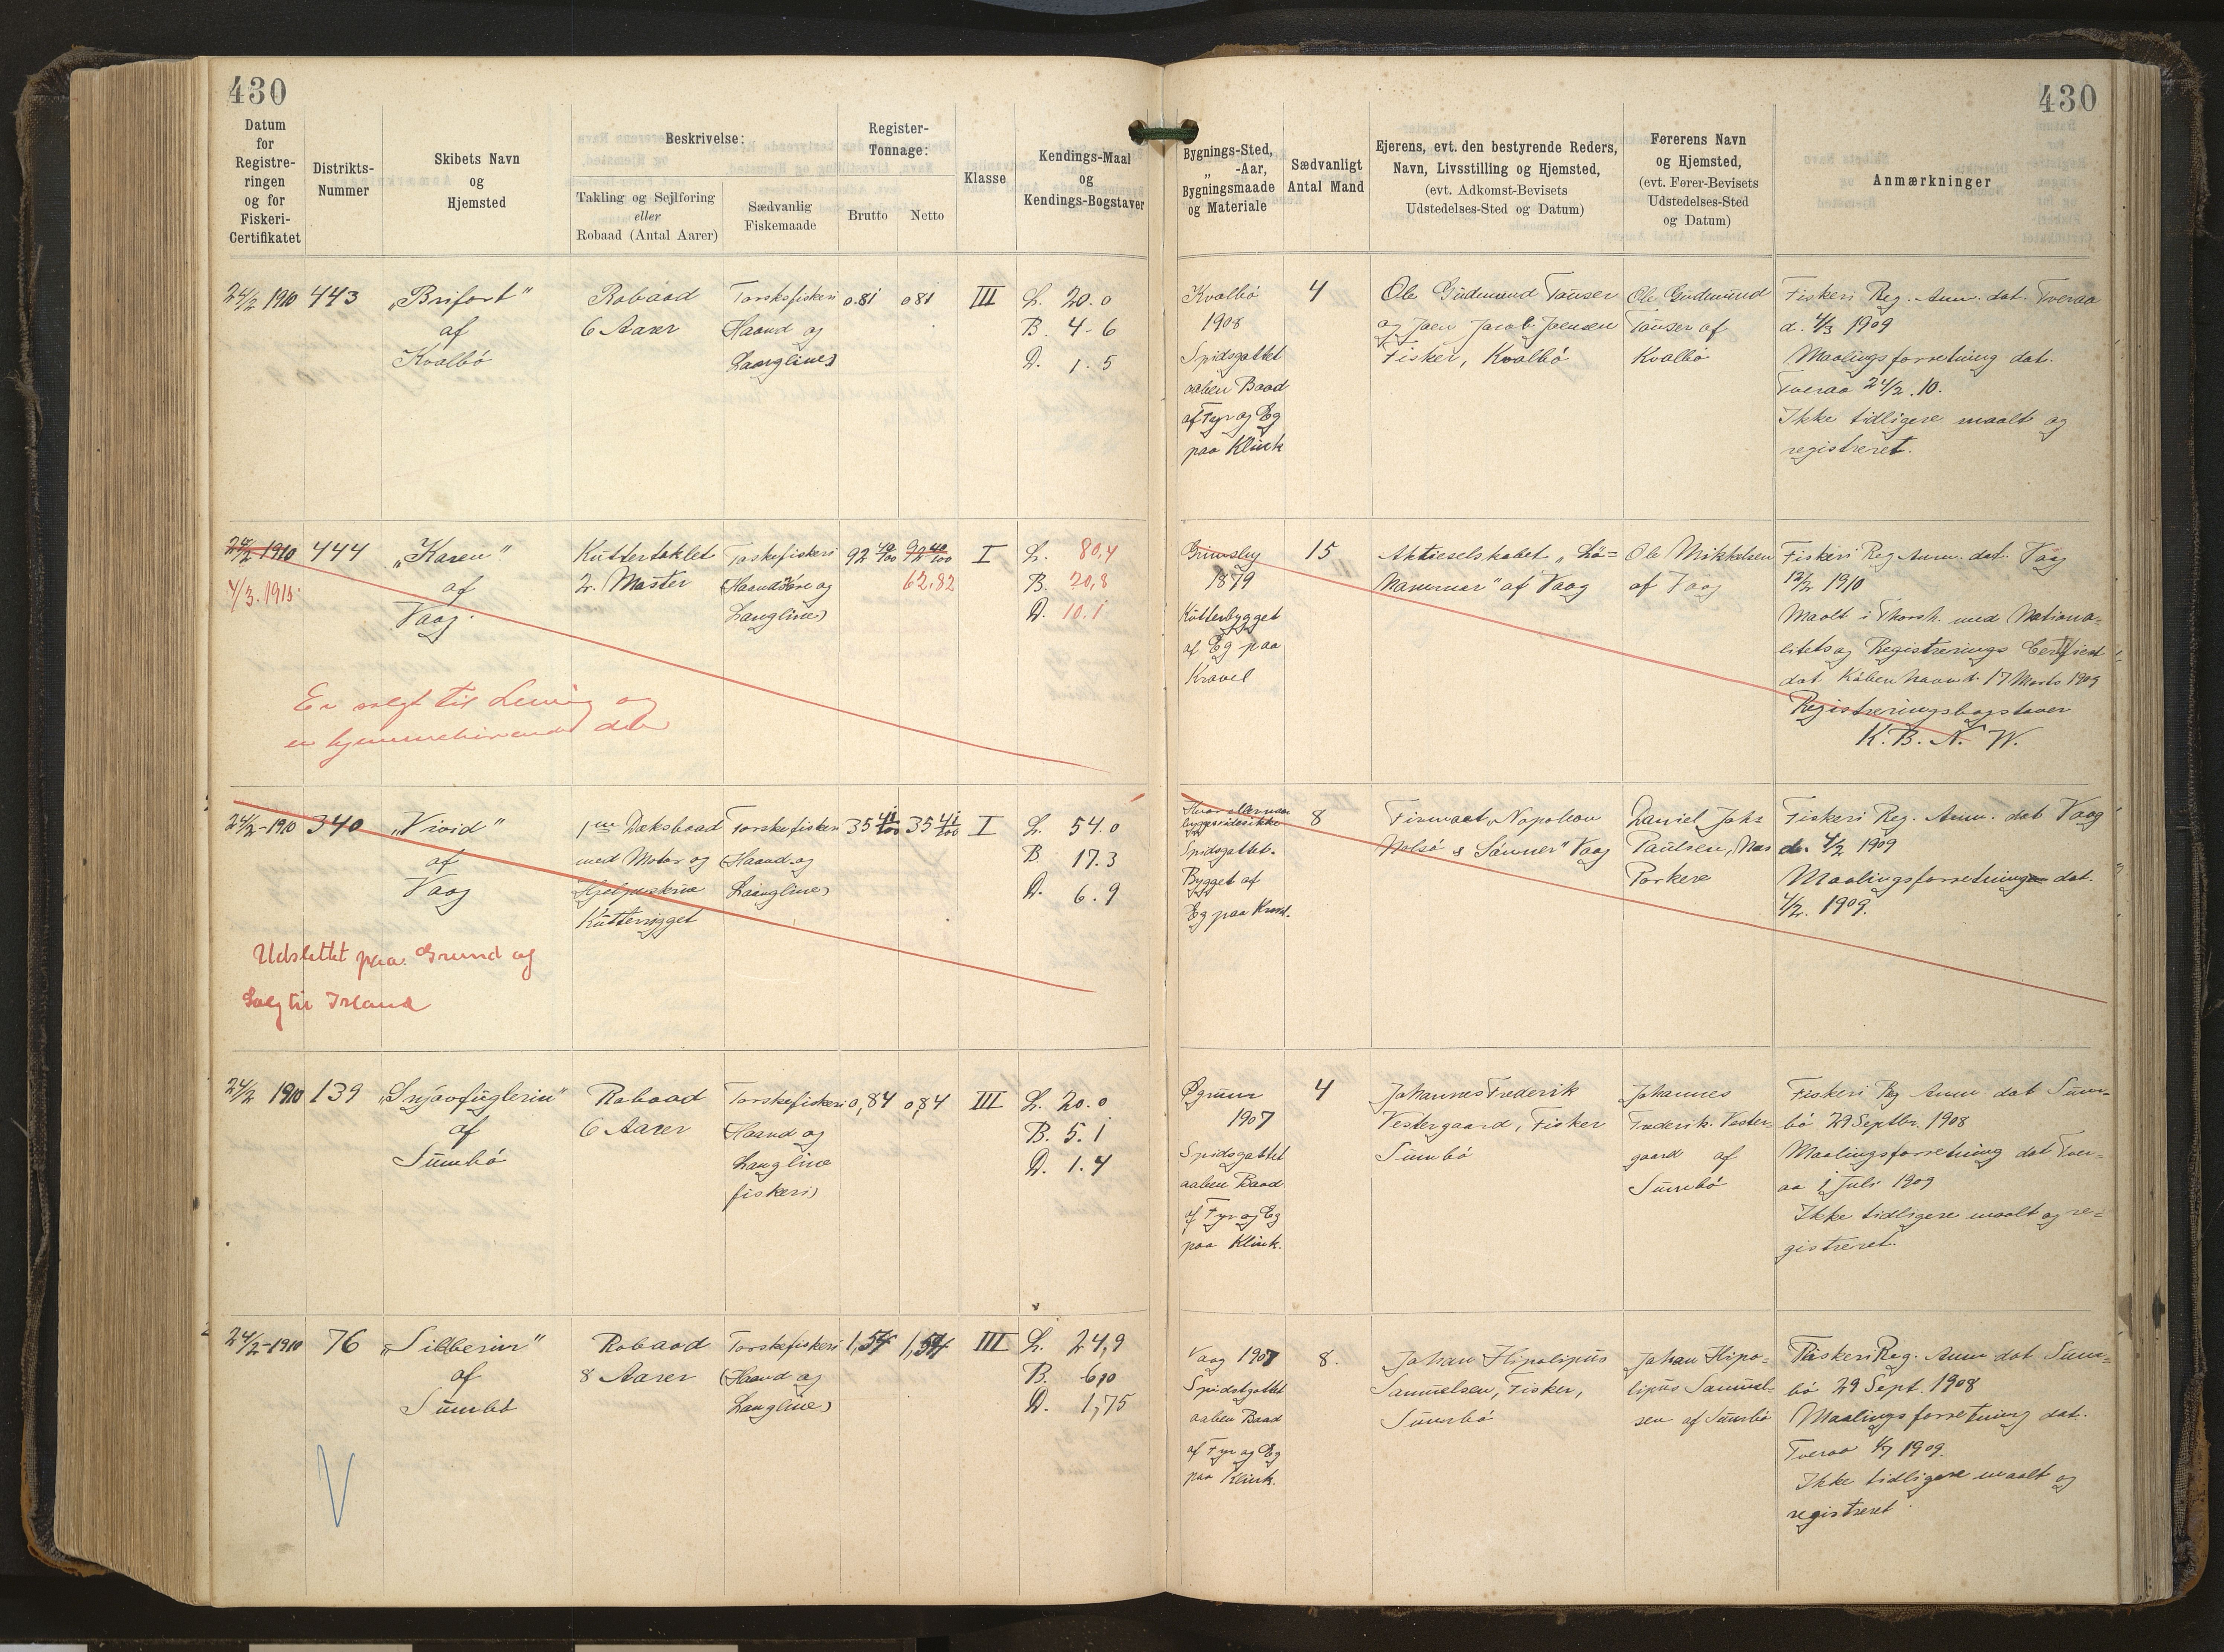 430
430
Datum
for
Registre-
ringen
og for
Fiskeri-
Certifikatet
Distrikts-
Nummer
Skibets Navn
og
Hjemsted
Beskrivelse:
Takling og Sejlføring
eller
Robaad (Antal Aarer)
Sædvanlig
Fiskemaade
Register-
Tonnage:
Brutto
Netto
Klasse
Kendings-Maal
og
Kendings-Bogstaver
Bygnings-Sted,
„ -Aar,
Bygningsmaade
og Materiale
Sædvanligt
Antal Mand
Ejerens, evt. den bestyrende Reders,
Navn, Livsstilling og Hjemsted,
(evt. Adkomst-Bevisets
Udstedelses-Sted og Datum)
Førerens Navn
og Hjemsted,
(evt. Fører-Bevisets
Udstedelses-Sted
og Datum)
Anmærkninger
24/2 1910
443
„Brifort"
af
Kvalbö
Robaad
6 Aarer
Torskefiskeri
(Haand og
Langline)
0.81
081
III
L. 20.0
B. 4-6
D. 1.5
Kvalbö
1908
Spidsgattet
aaben Baad
af Fyr og Eg
paa Klink
4
Ole Gudmund
og Joen Jacob Joensen
Fisker, Kvalbö
Ole Gudmund
af
Kvalbö
Fiskeri Reg. Anm. dat. Tveraa
d. 4/3 1909
Maalingsforretning dat.
Tveraa 24/2.10.
Ikke tidligere maalt og
registreret.
24/2 1910
4/3.1915
444
„Karen"
af
Vaag
Kuttertaklet
2. Master
Torskefiskeri
(Haandsöre og
Langline)
92 40/100
92 40/100
62.82
I
L. 80,4
B. 20,8
D. 10.1
Er solgt til og
er hjemmehörende der
Grimsby
1879
Kutterbygget
af Eg paa
Kravel
15
Aktieselskabet
af Vaag
Ole Mikkelsen
af Vaag
Fiskeri Reg Anm. dat. Vaag
12/2 1910
Maalt i Thorsh. med Nationa=
litets og Registrerings Certificat
dat. Köbenhavn d. 17 Marts 1909
Registreringsbogstaver
K.B.N.W.
24/2-1910
340
„Vivid"
af
Vaag
1 m Dæksbaad
med Motor og
Hjelpeskrue
Kutterrigget
Torskefiskeri
(Haand og
Langline)
35 41/100
35 41/100
I
L. 54.0
B. 17.3
D. 6.9
Udslettet paa Grund af
Salg til Island
Hvor
bygget vides ikke
Spidsgattet.
Bygget af
Eg paa Kravel.
8
Firmaet „Napoleon
Nolsö & Sönner" Vaag
Daniel Johs
Paulsen, Næs
Porkere
Fiskeri Reg. Anm. dat Vaag
d. 4/2 1909
Maalingsforretning dat.
4/2. 1909.
24/2 1910
139
„Snjóvfuglerin"
af
Sumbö
Robaad
6 Aarer
Torskefiskeri
(Haand og
Langline
fiskeri)
0,84
0,84
III
L. 20.0
B. 5.1
D. 1.4
1907
Spidsgattet
aaben Baad
af Fyr og Eg
paa Klink.
4
Johannes Frederik
Vestergaard, Fisker
Sumbö
Johannes
Frederik Vester-
gaard af
Sumbö
Fiskeri Reg Anm dat Sum-
bö 29 Septbr. 1908
Maalingsforretning dat Tver=
aa 1 Juli 1909
Ikke tidligere maalt og re=
gistreret.
24/2-1910
76
„Silberin"
af
Sumbö
Robaad
8 Aarer
Torskefiskeri
(Haand og
Langline)
1,54
1,54
III
L. 24,9
B. 6,10
D. 1,75
V
Vaag 1907
Spidsgattet
aaben Baad
af Fyr og Eg
paa Klink.
8.
Johan Hipolipus
Samuelsen, Fisker,
Sumbö
Johan Hipo=
lipus Samuel-
sen af Sumbö
Fiskeri Reg. Anm dat Sum=
bö 29 Sept. 1908
Maalingsforretning dat.
Tveraa 1/7 1909.
Ikke tidligere maalt og
registreret